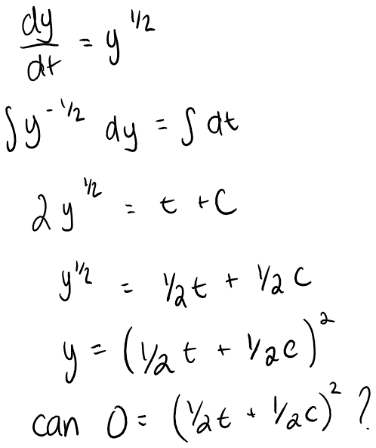 dy/dt = y^1/2
∫y^-1/2 dy = ∫dt
2y^1/2 = t + C
y^1/2 = 1/2t + 1/2C
y = (1/2t + 1/2C)^2
can 0 = (1/2t + 1/2C)^2 ?